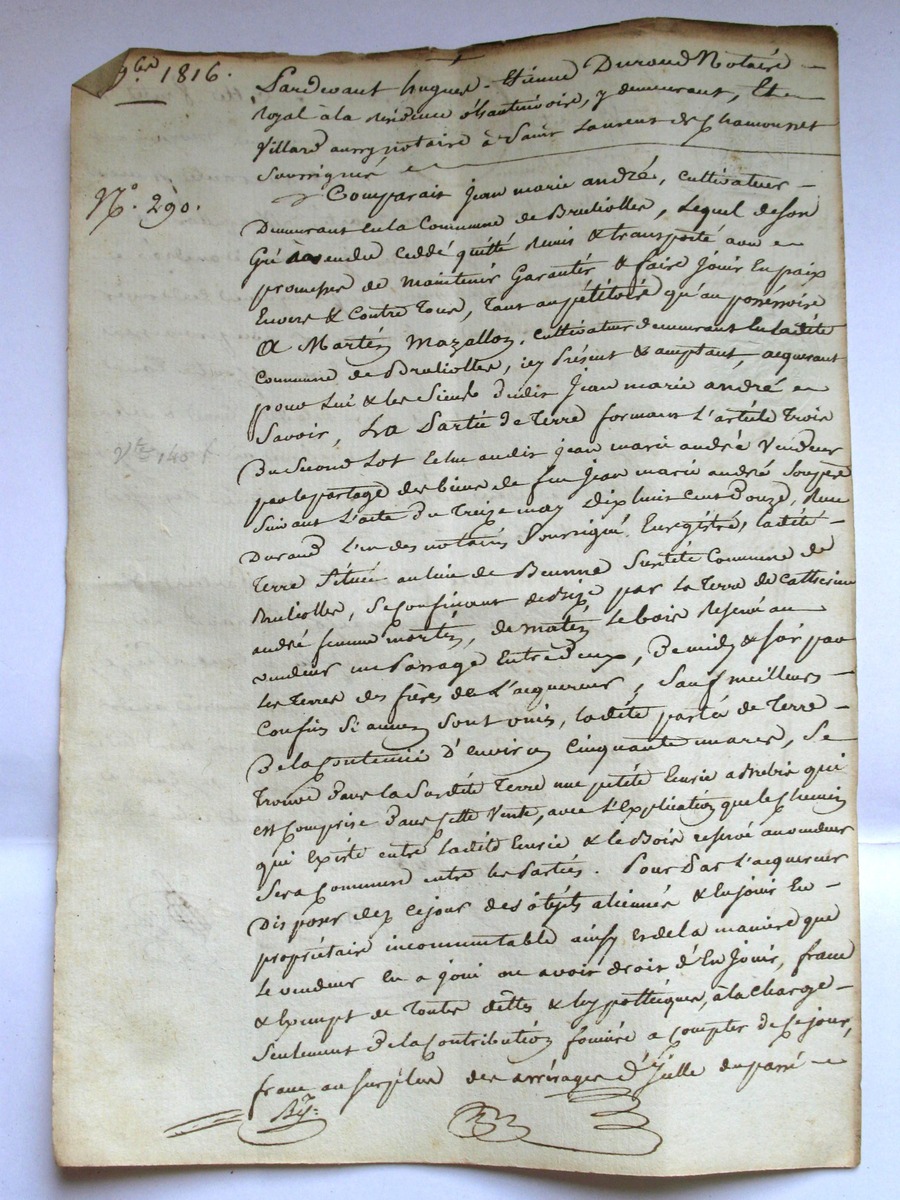 1816.
Pardevant hugues-Etienne Durand Notaire
Royal à la résidence d'hautrivoire, y demeurant, Et
Villard aussy notaire à Saint Laurent de Chamousset
Soussignés
N.° 290.
Comparait Jean marie andré, cultivateur
Demeurant en la Commune de Bruliolles, Lequel de son
Gré a vendu ceddé quitté remis & transporté avec
promesse de maintenir Garantir & faire Jouir En paix
Envers & Contre Tous, Tant au pétitoire qu'au possessoire
A Martin Mazallon, cultivateur demeurant En ladite
Commune de Bruliolles, icy Présent & acceptant, acquerant
pour Lui & les Siens dudit Jean marie andré
Savoir, La Partie de Terre formant L'article Trois
Du Second Lot Echu audit Jean marie andré Vendeur
par le partage des biens de feu Jean marie andré Son père
Suivant L'acte du Treize may Dix huit Cent Douze, Reçu
Durand L'un des notaires Soussignés Enregistré, ladite
Terre Située au lieu de Beunne Susdite Commune de
Brulliolles, Se Confinant de bize par La Terre de Catherine
andré femme martin, de matin Le bois Reservé au
vendeur un Passage Entre Deux, De midy & soir par
Les Terres des frères de L'acquereur, Sauf meilleurs
Confins Si aucuns Sont onis, ladite partie de Terre
De la Contenue D'environ Cinquante mares, Se
Trouve dans la Susdite Terre une petite Ecurie a Brebis qui
est Comprise Dans Cette Vente, avec L'Explication que le Chemin
qui Existe entre Ladite Ecurie & le Bois reservé au vendeur
Sera Commun entre les Parties. Pour Par L'acquereur
Disposer dez ce jour des objets aliennés & En Jouir En
propriétaire incommutable ainsy & de la maniere que
Le vendeur En a joui ou avoit droit d'En Jouir, franc
& Exempt de Toutes dettes & hypothéques, à la Charge
Seulement De la Contribution fonciere a Compter de ce jour,
franc au Surplus des arrérages d'icelle du passé